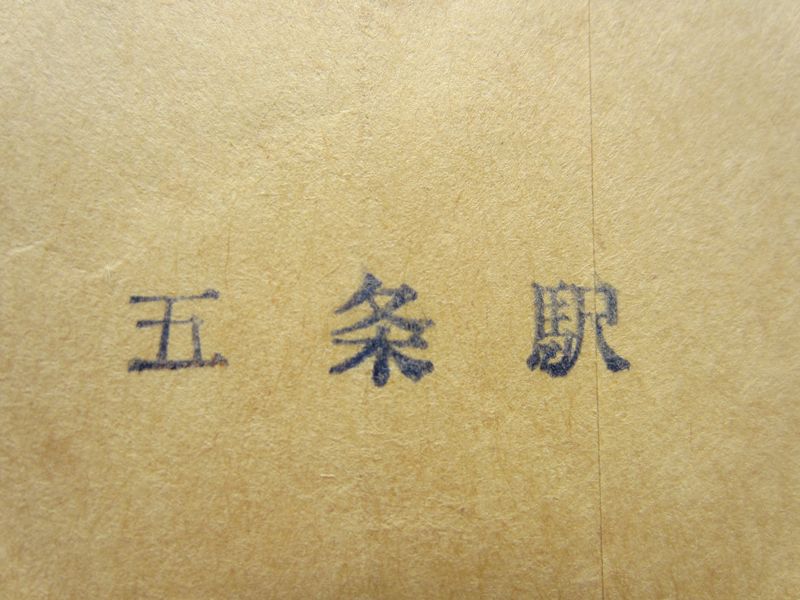 五条駅